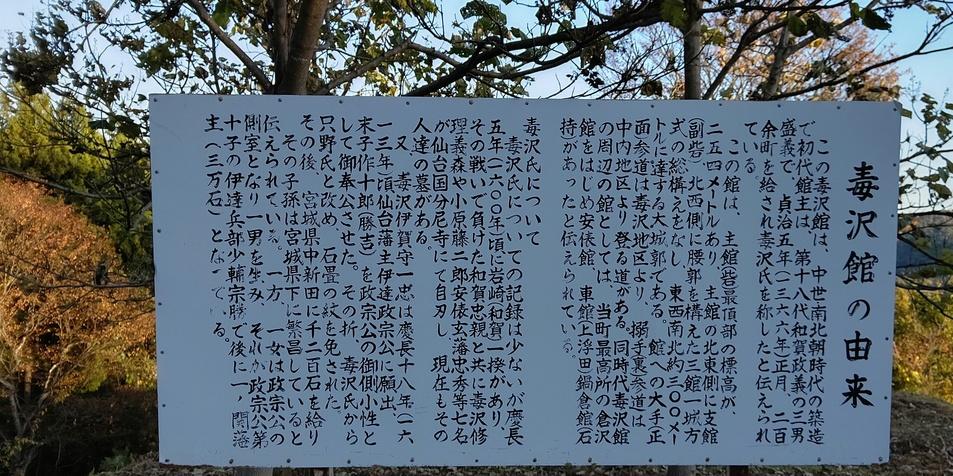 毒沢館の由来
この毒沢館は、中世南北朝時代の築造
で初代館主は、第十八代和賀政義の三男
盛義で、貞治五年(一三六六年)正月、二百
余町を給され毒沢氏を称したと伝えられ
ている。
この館は、主館(砦)最頂部の標高が、
二五四メートルあり、主館の北東側に支館
(副砦)、北西側に腰郭を構えた三館一城方
式の総構えをなし、東西南北約三〇〇メー
トルに達する大城郭である。館への大手(正
面)参道は毒沢地区より、搦手裏参道は
中内地区より登る道がある。同時代毒沢館
の周辺の館としては、当町最高所の倉沢
館をはじめ安俵館、車館、上浮田鍋倉館石
持)があったと伝えられている。
毒沢氏について
毒沢氏についての記録は少ないが慶長
五年(一六〇〇年)頃に岩崎(和賀)一揆があり、
その戦いで負けた和賀忠親と共に毒沢修
理義森や小原藤二郎安俵玄蕃忠秀等七名
が仙台国分尼寺にて自刃し、現在もその
人達の墓がある。
又、毒沢伊賀守一忠は慶長十八年(一六
一三年)頃仙台藩主伊達政宗公に願出、
末子作十郎(勝吉)を政宗公の御側小性と
して御奉公させた。その折、毒沢氏から
只野氏と改め、石畳の紋を免許された。
その後、宮城県中新田に千二百石を給り
その子孫は宮城県下に繁昌していると
伝えられている。一方、一女は政宗公の
側室となり一男を生み、それが政宗公第
十子の伊達兵部少輔宗勝で後に一ノ関藩
主(三万石)となっている。